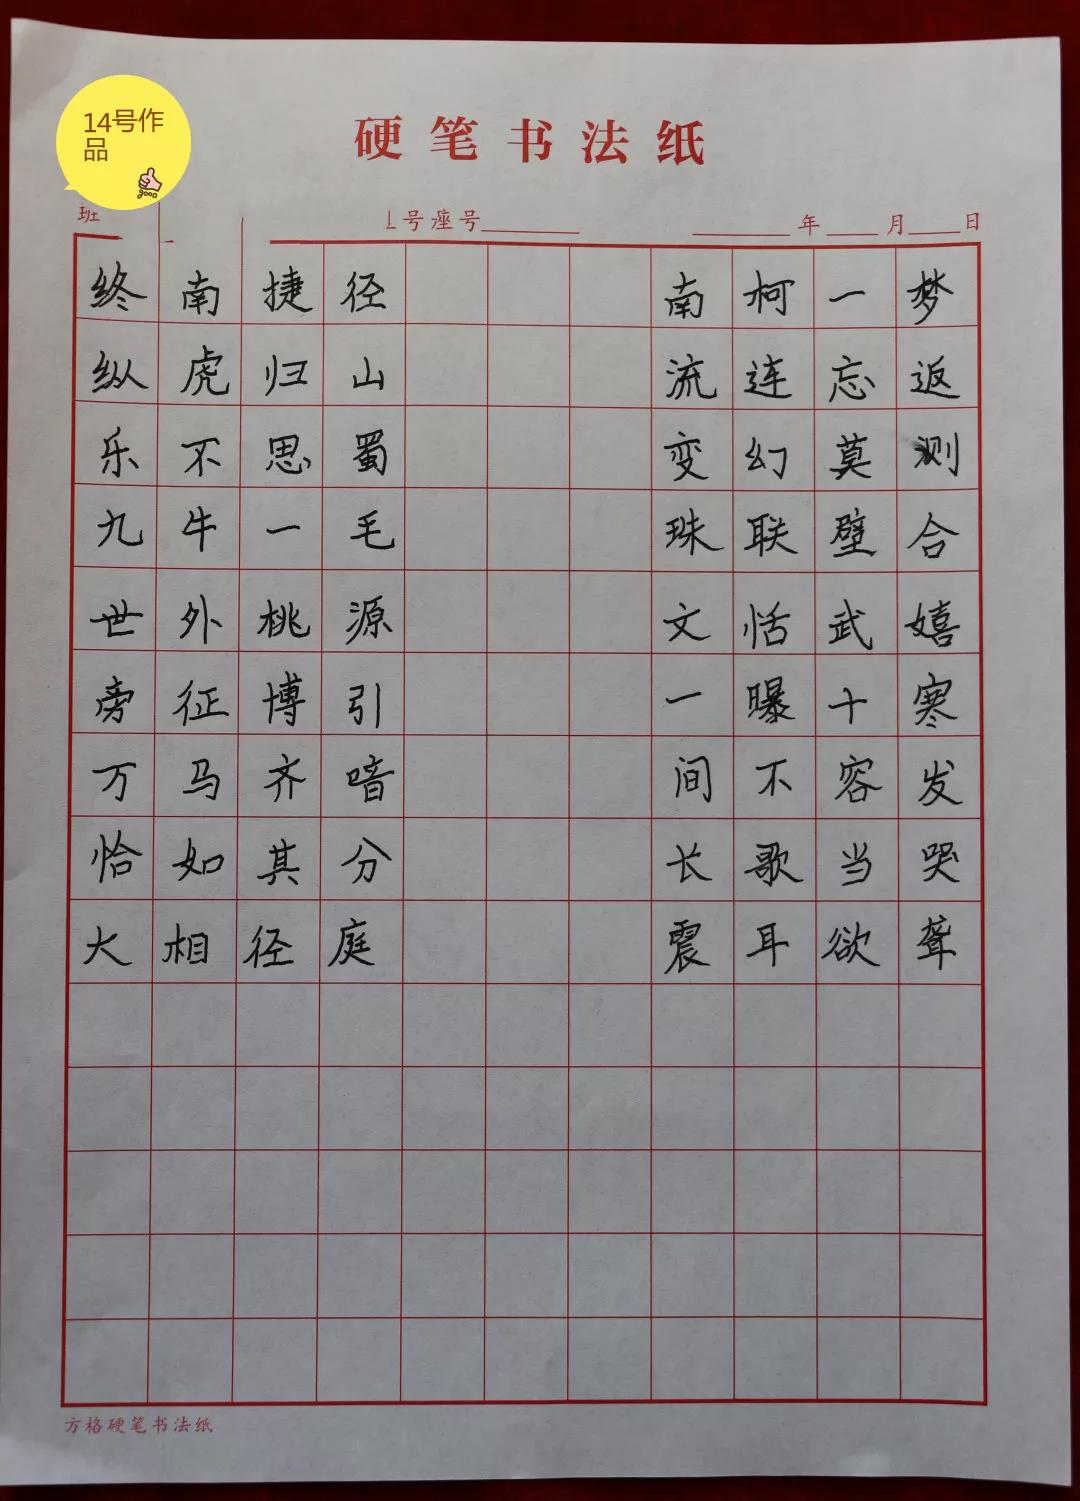 14号作
品
good
硬笔书法纸
班 号座号 年 月 日
终南捷径 南柯一梦
纵虎归山 流连忘返
乐不思蜀 变幻莫测
九牛一毛 珠联璧合
世外桃源 文恬武嬉
旁征博引 一曝十寒
万马齐喑 间不容发
恰如其分 长歌当哭
大相径庭 震耳欲聋
方格硬笔书法纸